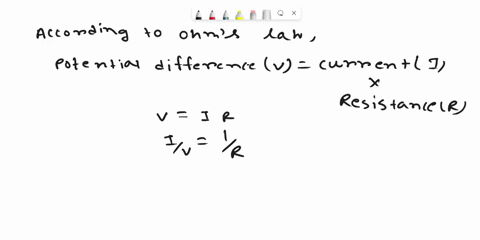 According to ohm's law,
Potential difference (V) = current (I)
×
Resistance (R)
V = I R
I/V = 1/R